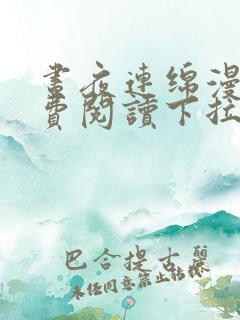 晝夜連綿漫
費閱讀下拉
巴合提古麗
未经同意禁止转载